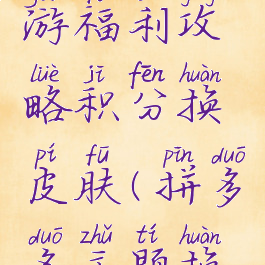 游福利攻
lüè jī fēn huàn
略积分换
pí fū pīn duō
皮肤(拼多
duō zhǔ tí huàn
多主题换